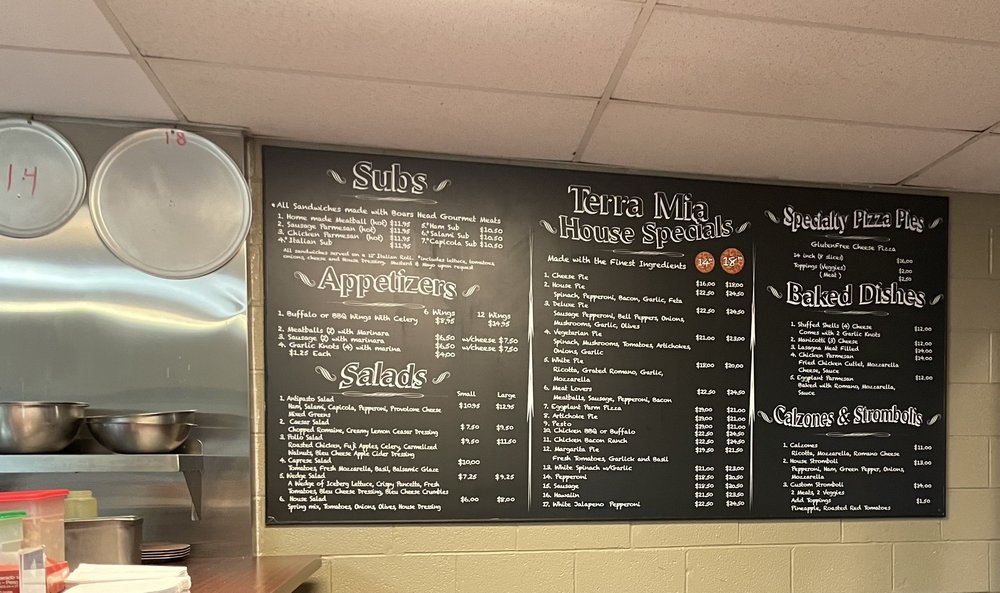 14
18
Subs
* All Sandwiches made with Boars Head Gourmet Meats
1. Home made Meatball (hot) $11.95 5.*Ham Sub $10.50
2. Sausage Parmesan (hot) $11.95 6.*Salami Sub $10.50
3. Chicken Parmesan (hot) $11.95 7.*Capicola Sub $10.50
4.*Italian Sub $11.95
All sandwiches served on a 12" Italian Roll. *includes lettuce, tomatoes,
onions, cheese and House Dressing. Mustard & Mayo upon request
Appetizers
6 Wings 12 Wings
1. Buffalo or BBQ Wings With Celery $8.95 $14.95
2. Meatballs (2) with Marinara $6.50 w/cheese $7.50
3. Sausage (2) with marinara $6.50 w/cheese $7.50
4. Garlic Knots (4) with marina $4.00
$1.25 Each
Salads
Small Large
1. Antipasto Salad
Ham, Salami, Capicola, Pepperoni, Provolone Cheese $10.95 $12.95
Mixed Greens
2. Caesar Salad
Chopped Romaine, Creamy Lemon Ceasar Dressing $7.50 $9.50
3. Pollo Salad
Roasted Chicken, Fuji Apples, Celery, Carmelized $9.50 $11.50
Walnuts, Bleu Cheese Apple Cider Dressing
4. Caprese Salad $10.00
Tomatoes, Fresh Mozzarella, Basil, Balsamic Glaze
5. Wedge Salad $7.25 $9.25
A Wedge of Iceberg Lettuce, Crispy Pancetta, Fresh
Tomatoes, Bleu Cheese Dressing, Bleu Cheese Crumbles
6. House Salad $6.00 $8.00
Spring mix, Tomatoes, Onions, Olives, House Dressing
Terra Mia
House Specials
Made with the Finest Ingredients 14" 18"
1. Cheese Pie $16.00 $18.00
2. House Pie $22.50 $24.50
Spinach, Pepperoni, Bacon, Garlic, Feta
3. Deluxe Pie $22.50 $24.50
Sausage Pepperoni, Bell Peppers, Onions,
Mushrooms, Garlic, Olives
4. Vegetarian Pie
Spinach, Mushrooms, Tomatoes, Artichokes, $21.00 $23.00
Onions, Garlic
5. White Pie $18.00 $20.00
Ricotta, Grated Romano, Garlic,
Mozzarella
6. Meat Lovers $22.50 $24.50
Meatballs, Sausage, Pepperoni, Bacon
7. Eggplant Parm Pizza $19.00 $21.00
8. Artichoke Pie $19.00 $21.00
9. Pesto $19.00 $21.00
10. Chicken BBQ or Buffalo $22.50 $24.50
11. Chicken Bacon Ranch $22.50 $24.50
12. Margarita Pie $19.50 $21.50
Fresh Tomatoes, Garlick and Basil
13. White Spinach w/Garlic $21.00 $23.00
14. Pepperoni $18.50 $20.50
15. Sausage $18.50 $20.50
16. Hawaiin $21.50 $23.50
17. White Jalapeno Pepperoni $22.50 $24.50
Specialty Pizza Pies
GlutenFree Cheese Pizza
14 inch (8 slices) $16.00
Toppings (Veggies) $2.00
(Meat) $2.50
Baked Dishes
1. Stuffed Shells (4) Cheese $12.00
Comes with 2 Garlic Knots
2. Manicotti (3) Cheese $12.00
3. Lasagna Meat Filled $14.00
4. Chicken Parmesan $14.00
Fried Chicken Cutlet, Mozzarella
Cheese, Sauce
5. Eggplant Parmesan $12.00
Baked with Romano, Mozzarella,
Sauce
Calzones & Strombolis
1. Calzones $11.00
Ricotta, Mozzarella, Romano Cheese
2. House Stromboli $13.00
Pepperoni, Ham, Green Pepper, Onions,
Mozzarella
3. Custom Stromboli $14.00
2 Meats, 2 Veggies
Add Toppings $1.50
Pineapple, Roasted Red Tomatoes